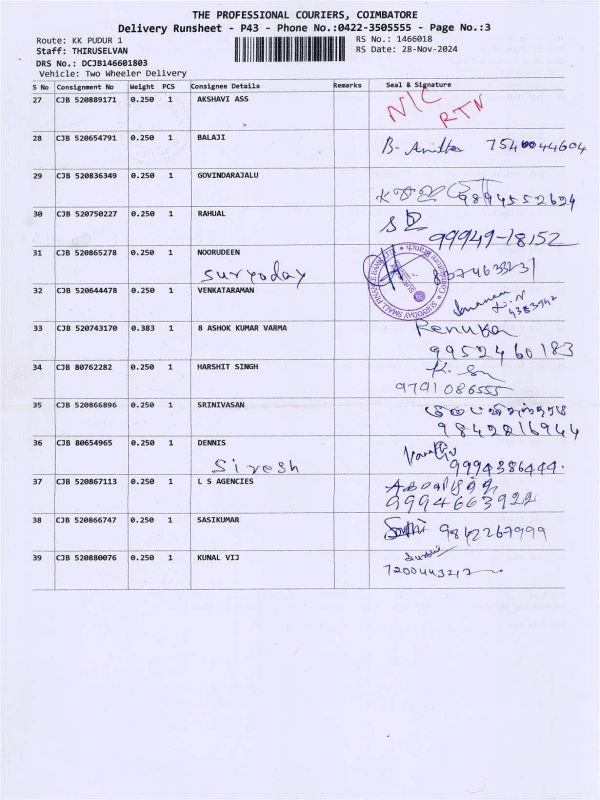 THE PROFESSIONAL COURIERS, COIMBATORE
Delivery Runsheet - P43 - Phone No.:0422-3505555 - Page No.:3
Route: KK PUDUR 1
RS No.: 1466018
Staff: THIRUSELVAN
RS Date: 28-Nov-2024
DRS No.: DCJB146601803
Vehicle: Two Wheeler Delivery
S No Consignment No Weight PCS Consignee Details Remarks Seal & Signature
27 CJB 520889171 0.250 1 AKSHAVI ASS N/C RTN
28 CJB 520654791 0.250 1 BALAJI B. Anitha 7540044604
29 CJB 520836349 0.250 1 GOVINDARAJALU 9894552624
30 CJB 520750227 0.250 1 RAHUAL 99949-18152
31 CJB 520865278 0.250 1 NOORUDEEN
Suryoday
32 CJB 520644478 0.250 1 VENKATARAMAN
33 CJB 520743170 0.383 1 8 ASHOK KUMAR VARMA Renuka
9952460183
34 CJB 80762282 0.250 1 HARSHIT SINGH
9791086555
35 CJB 520866896 0.250 1 SRINIVASAN
9842816944
36 CJB 80654965 0.250 1 DENNIS
Siresh 9994386444.
37 CJB 520867113 0.250 1 L S AGENCIES
9994663922
38 CJB 520866747 0.250 1 SASIKUMAR 9842267999
39 CJB 520880076 0.250 1 KUNAL VIJ
7200443212